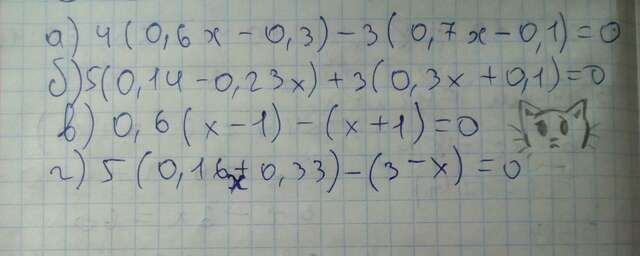 а) 4(0,6x - 0,3) - 3(0,7x - 0,1) = 0
б) 5(0,14 - 0,23x) + 3(0,3x + 0,1) = 0
в) 0,6(x - 1) - (x + 1) = 0
г) 5(0,16x + 0,33) - (3 - x) = 0